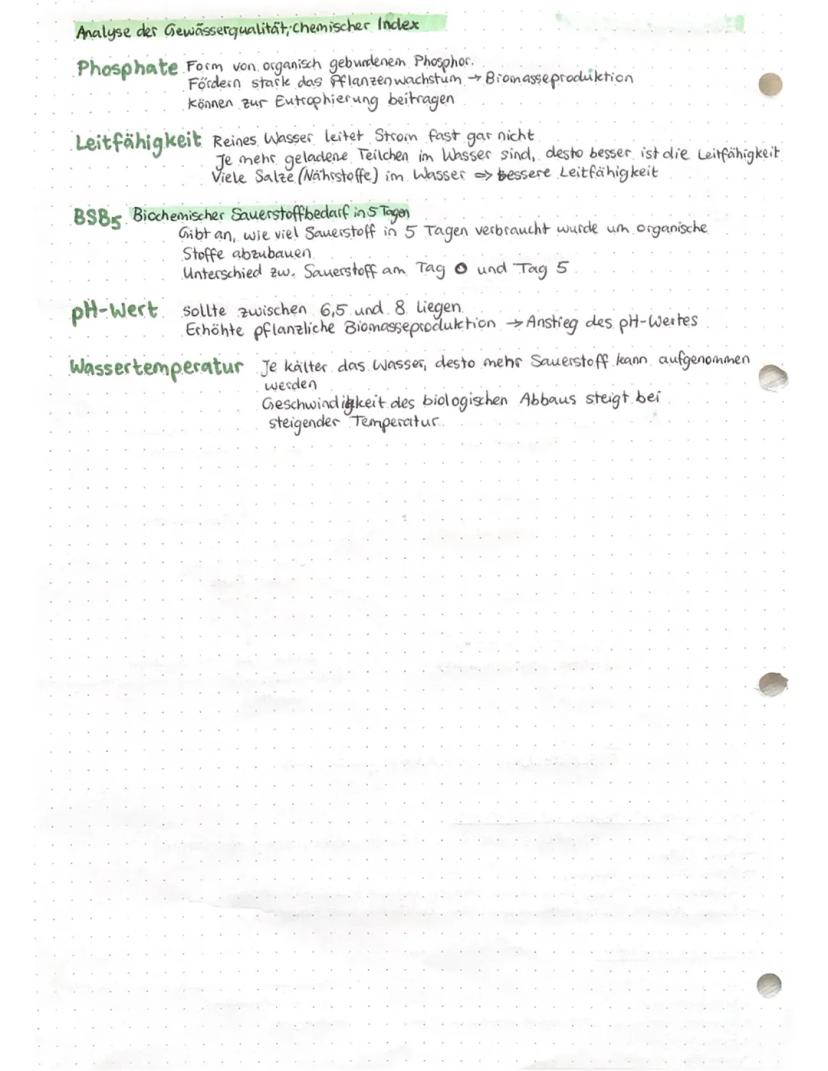 Analyse der Gewässerqualität; Chemischer Index
Phosphate Form von organisch gebundenem Phosphor.
Fördern stark das Pflanzenwachstum → Biomasseproduktion
können zur Eutrophierung beitragen
Leitfähigkeit Reines Wasser leitet Strom fast gar nicht
Je mehr geladene Teilchen im Wasser sind, desto besser ist die Leitfähigkeit
Viele Salze (Nährstoffe) im Wasser => bessere Leitfähigkeit
BSB5 Biochemischer Sauerstoffbedarf in 5 Tagen
Gibt an, wie viel Sauerstoff in 5 Tagen verbraucht wurde um organische
Stoffe abzubauen
Unterschied zw. Sauerstoff am Tag 0 und Tag 5
pH-Wert sollte zwischen 6,5 und 8 liegen
Erhöhte pflanzliche Biomasseproduktion → Anstieg des pH-Wertes
Wassertemperatur Je kälter das Wasser, desto mehr Sauerstoff kann aufgenommen
werden
Geschwindigkeit des biologischen Abbaus steigt bei
steigender Temperatur.